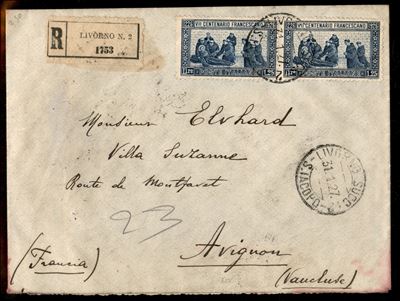 R
LIVORNO N. 2
1753
VII CENTENARIO FRANCESCANO
VII CENTENARIO FRANCESCANO
1.25
Monsieur Elvhard
Villa Suzanne
Route de Montfavet
LIVORNO SUCC.
31.1.27
S. IACOPO
23
(Francia)
Avignon
(Vaucluse)